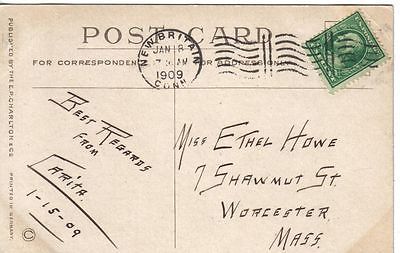 POST CARD
FOR CORRESPONDENCE
FOR ADDRESS ONLY
NEW BRITAIN
JAN 18
1909
CONN.
PUBLISHED BY THE E.P. CHARLTON & CO.
PRINTED IN GERMANY
BEST REGARDS
FROM
CARITA.
1-15-09
MISS ETHEL HOWE
7 SHAWMUT ST.
WORCESTER
MASS.
©